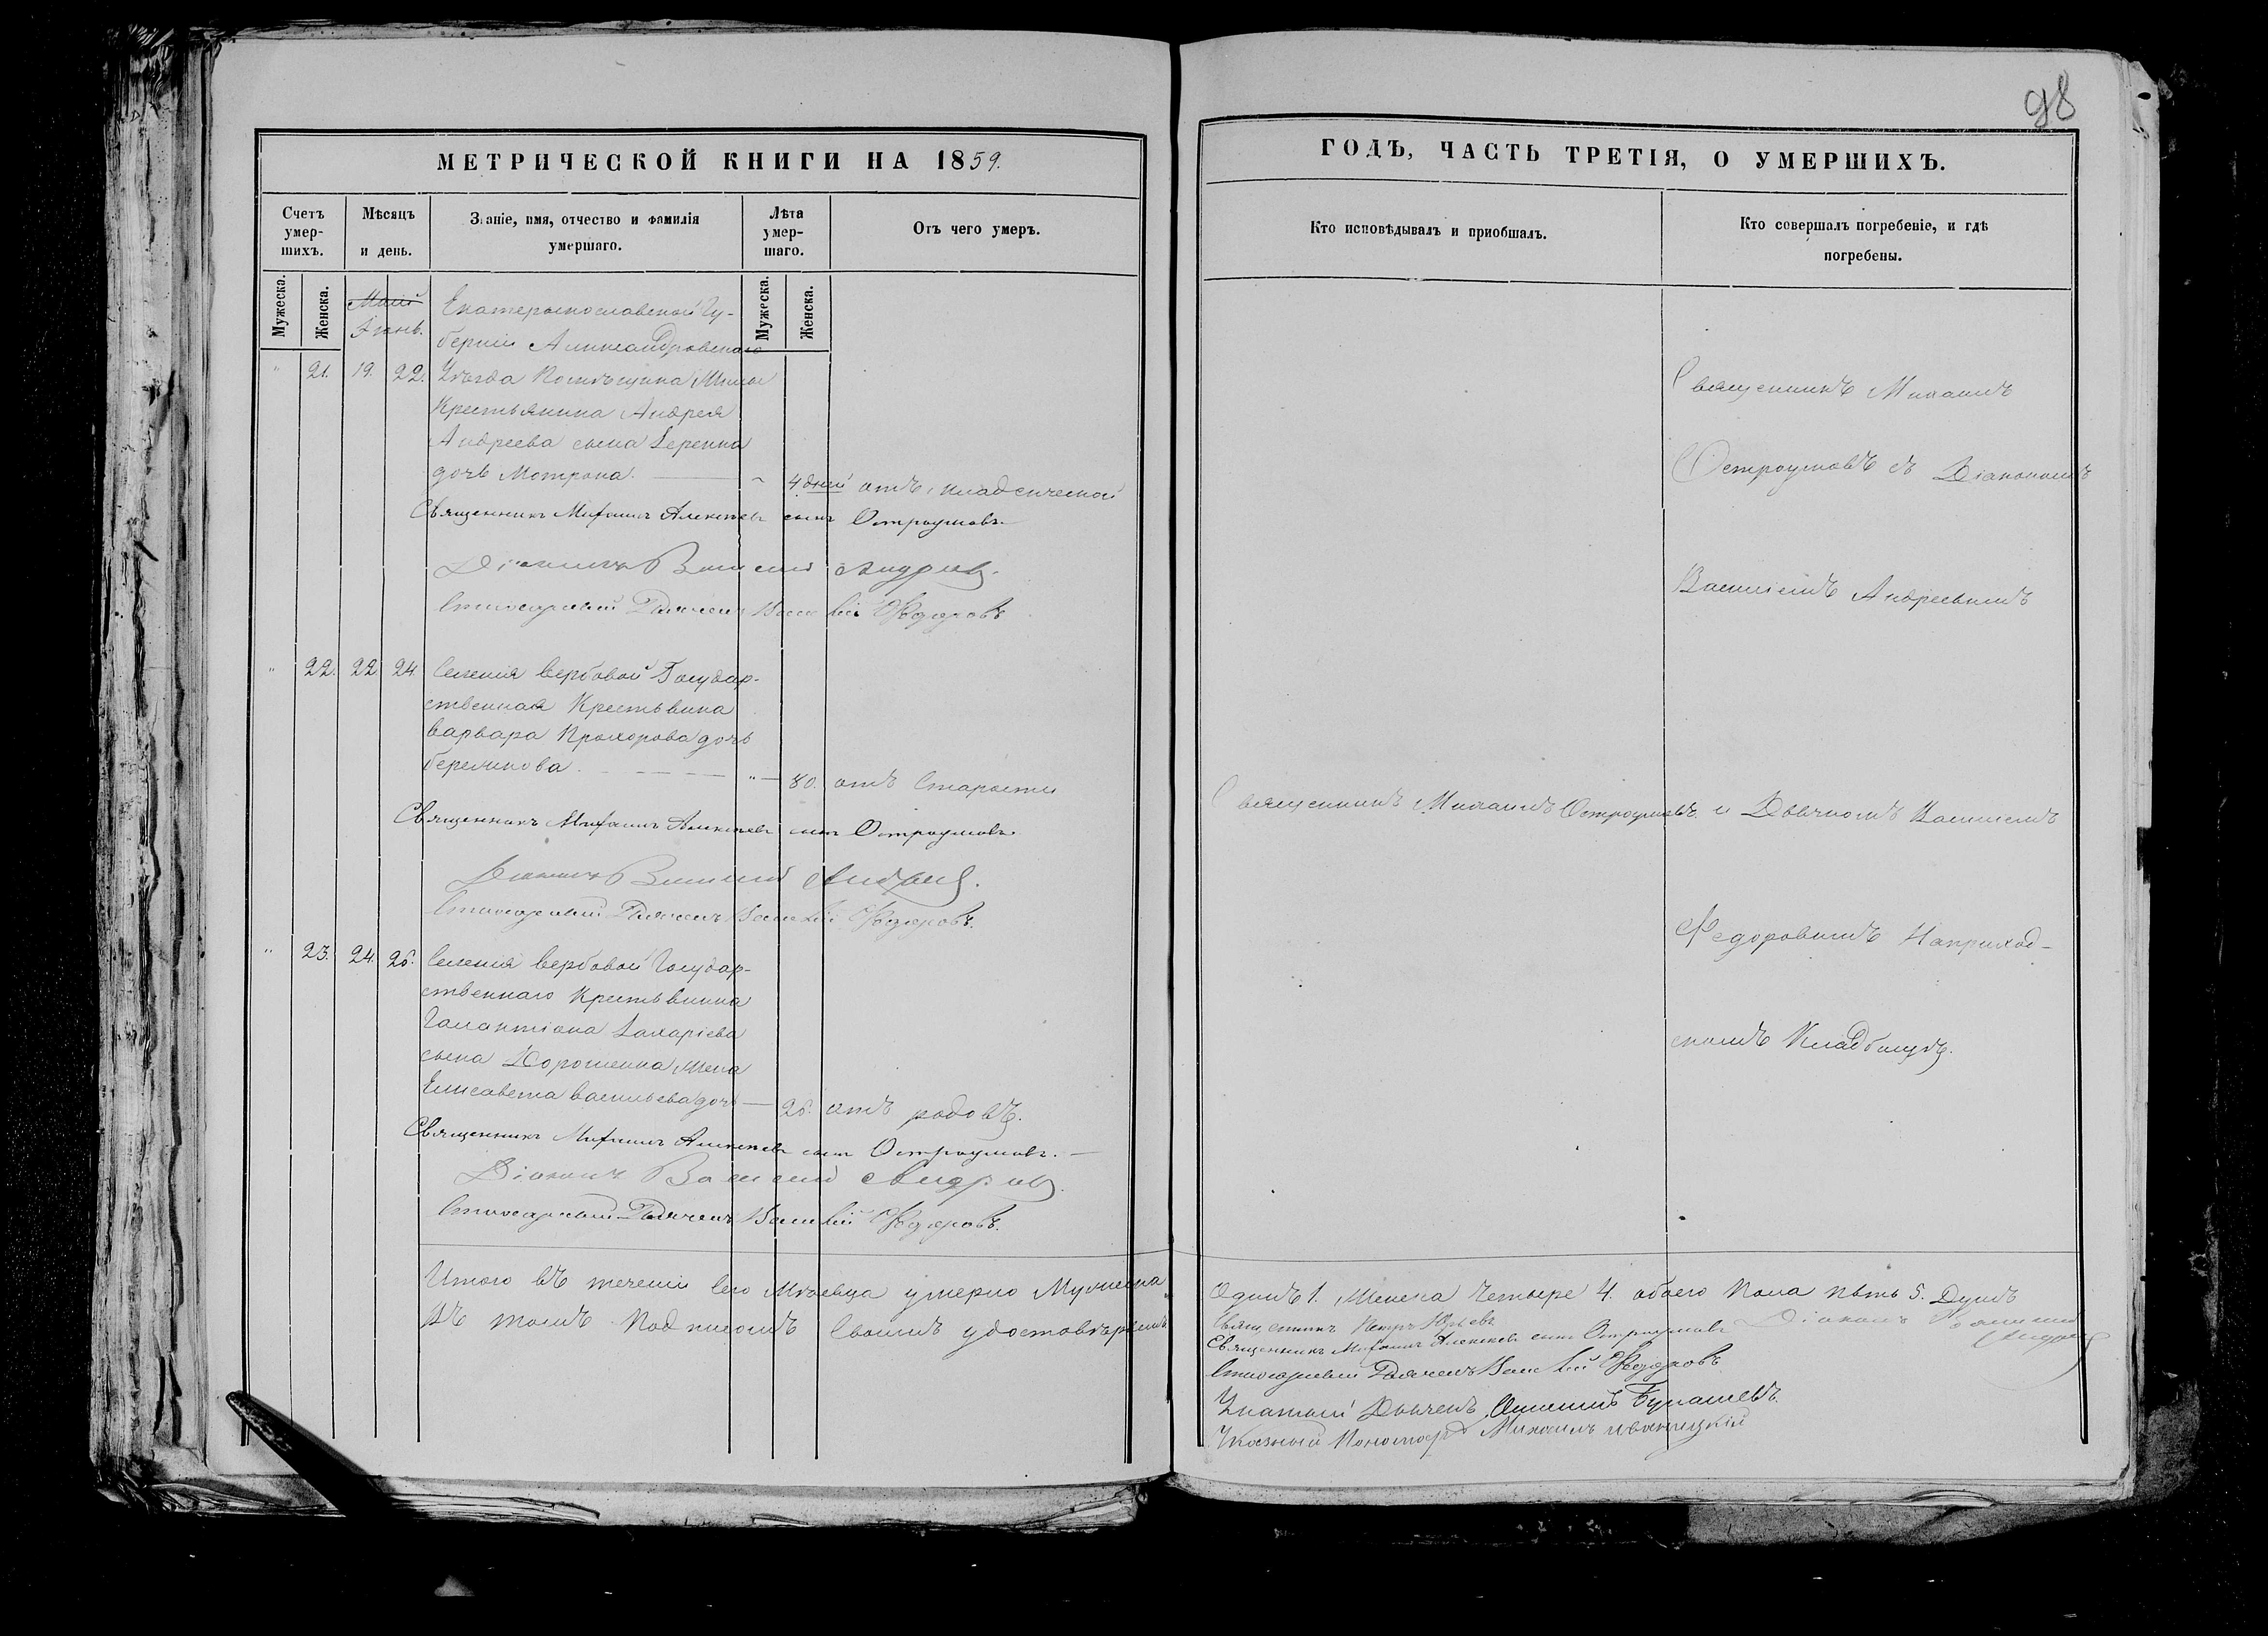 98
МЕТРИЧЕСКОЙ КНИГИ НА 1859.
ГОДЪ, ЧАСТЬ ТРЕТІЯ, О УМЕРШИХЪ.
Счетъ умер-шихъ.
Мѣсяцъ и день.
Званіе, имя, отчество и фамилія умершаго.
Лѣта умер-шаго.
Отъ чего умеръ.
Кто исповѣдывалъ и приобшалъ.
Кто совершалъ погребеніе, и гдѣ погребены.
Мужеска.
Женска.
Май
Іюнь.
Мужеска.
Женска.
Екатеринославской Гу-
берніи Александровскаго
" 21. 19. 22. Уѣзда Помѣщика
Крестьянина Андрея
Андреева сына
дочь Мотрона. 4 дней отъ младенческой
Священникъ Михаилъ Алексѣевъ сынъ Остроумовъ
Діаконъ Василій Андреевъ.
Стихарный Дьячекъ Василій Ѳедоровъ
" 22. 22 24. Селенія Вербовой Государ-
ственная Крестьянка
Варвара Прохорова дочь
" 80. отъ Старости
Священникъ Михаилъ Алексѣевъ сынъ Остроумовъ.
Діаконъ Василій Андреевъ.
Стихарный Дьячекъ Василій Ѳедоровъ.
" 23. 24. 26. Селенія Вербовой Государ-
ственнаго Крестьянина
Захаріева
сына Дорошенка жена
Елисавета Васильева дочь 26. отъ родовъ.
Священникъ Михаилъ Алексѣевъ сынъ Остроумовъ.
Діаконъ Василій Андреевъ.
Стихарный Дьячекъ Василій Ѳедоровъ.
Итого въ теченіи сего Мѣсяца умерло Мужеска
Въ томъ Подписомъ Своимъ удостовѣряемъ
Священникъ Михаилъ
Остроумовъ съ Діакономъ
Василіемъ Андреевымъ
Священникъ Михаилъ Остроумовъ. и Дьячкомъ Василіемъ
Федоровымъ На приход-
скомъ Кладбищѣ.
Одинъ 1. Женска Четыре 4. обоего Пола пять 5. Душъ
Священникъ Петръ
Священникъ Михаилъ Алексѣевъ сынъ Остроумовъ Діаконъ Василій Андреевъ
Стихарный Дьячекъ Василій Ѳедоровъ
Дьячекъ
Указный Пономарь Михаилъ